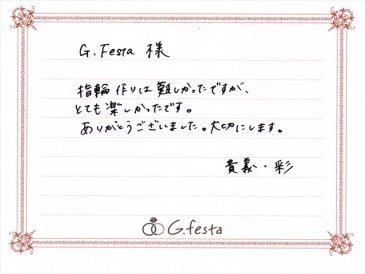 G.Festa 様
指輪作りは難しかったですが、
とても楽しかったです。
ありがとうございました。大切にします。
貴義・彩
G.festa